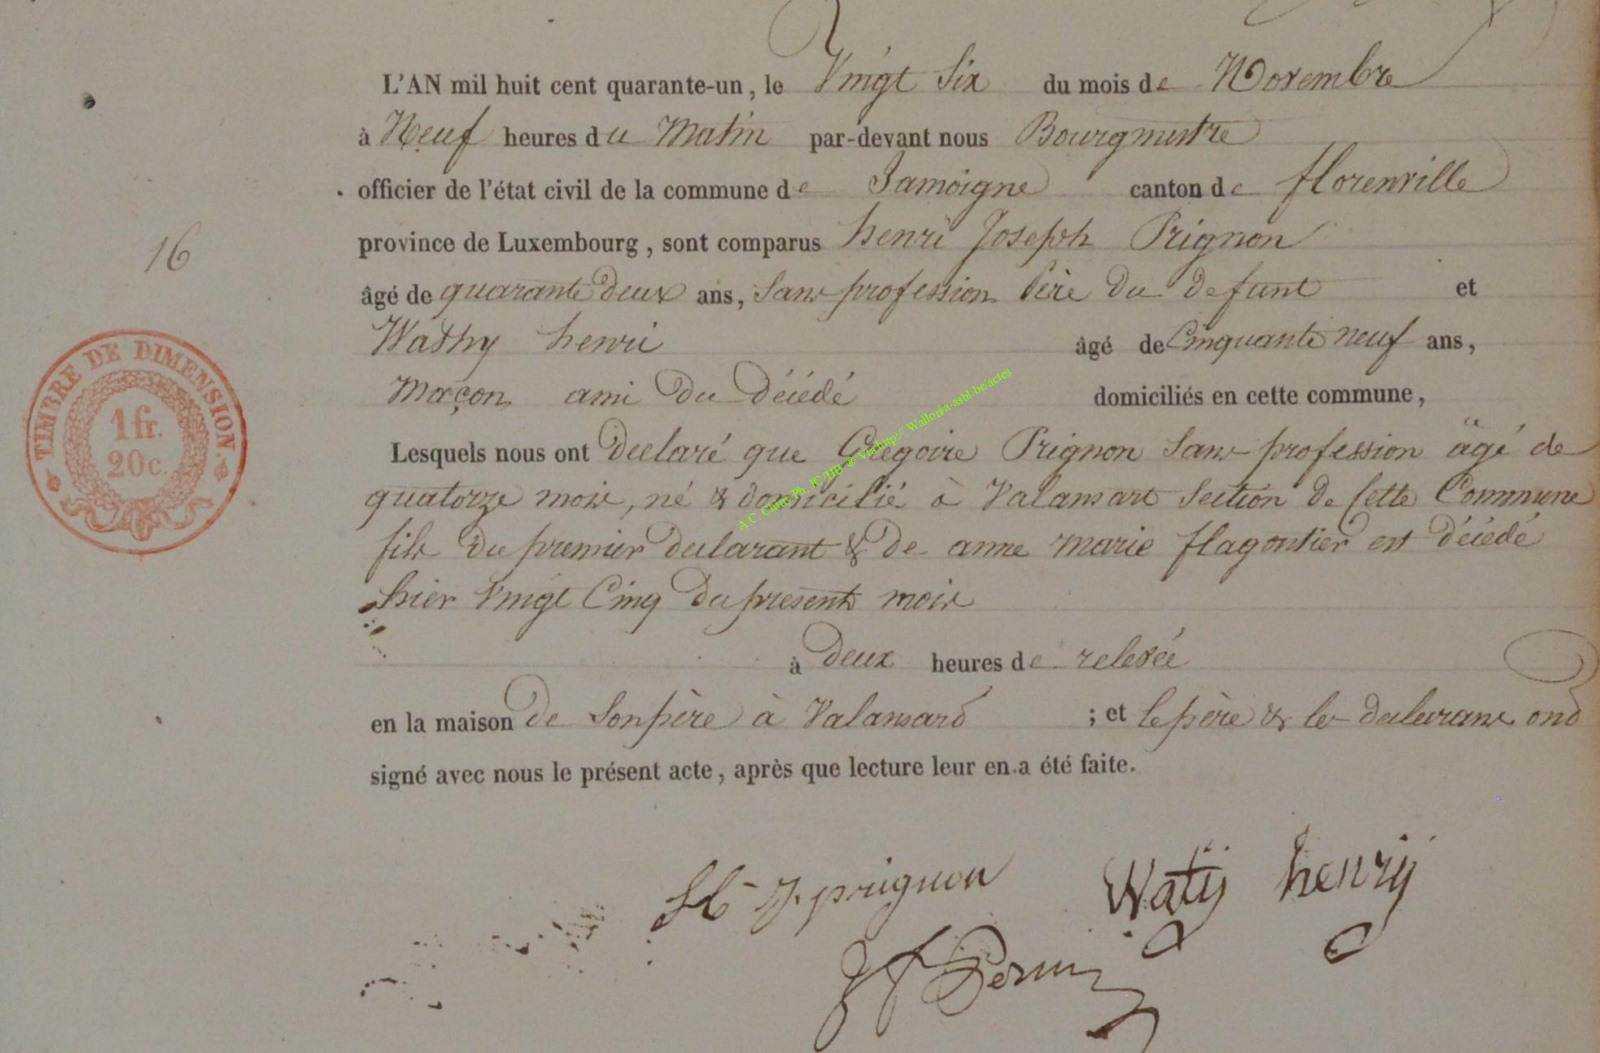 L'AN mil huit cent quarante-un, le Vingt Six du mois de Novembre
à Neuf heures du Matin par-devant nous Bourgmestre
officier de l'état civil de la commune de Jamoigne canton de florenville
province de Luxembourg, sont comparus henri Joseph Prignon
16
âgé de quarante deux ans, Sans profession Père du defunt et
Wathy henri âgé de Cinquante neuf ans,
Maçon ami du décédé domiciliés en cette commune,
TIMBRE DE DIMENSION.
1 fr.
20 c.
Lesquels nous ont declaré que Gregoire Prignon Sans profession âgé de
quatorze mois, né & domicilié à Valansart Section de Cette Commune
fils du premier declarant & de anne marie flagontier est décédé
hier Vingt Cinq du present mois
à deux heures de relevée
en la maison de Son père à Valansard ; et le père & les declarans ond
signé avec nous le présent acte, après que lecture leur en a été faite.
h J. prignon Watÿ henrÿ
J f